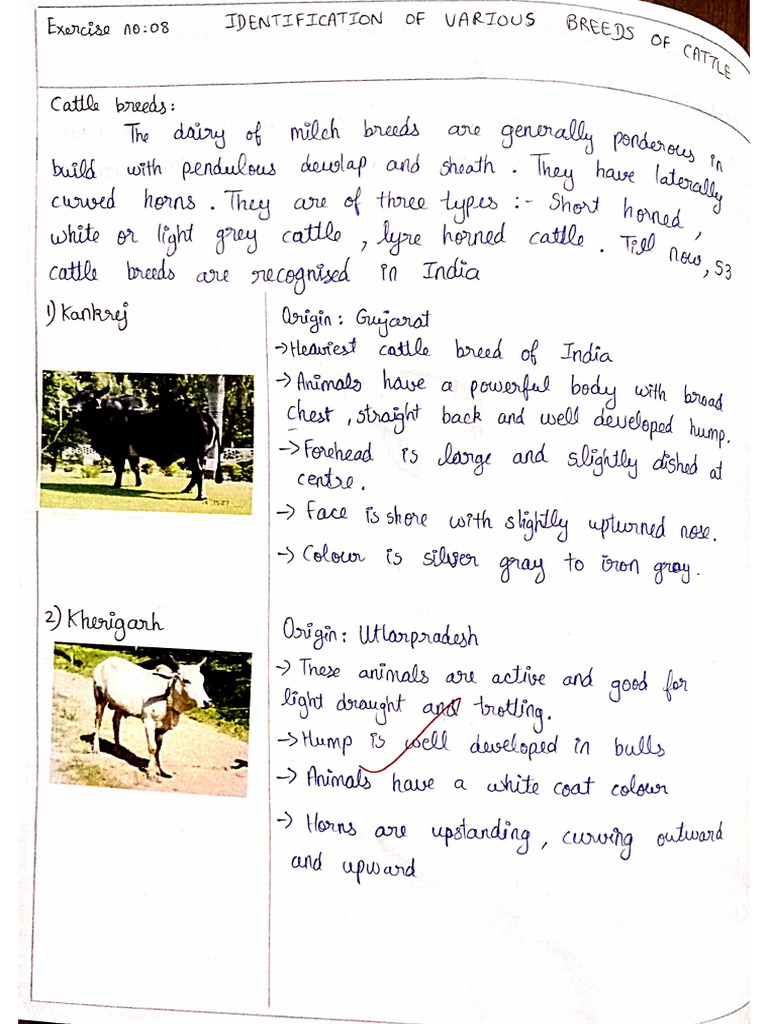 Exercise no:08
IDENTIFICATION OF VARIOUS BREEDS OF CATTLE
Cattle breeds:
The dairy of milch breeds are generally ponderous in
build with pendulous dewlap and sheath. They have laterally
curved horns. They are of three types :- Short horned,
white or light grey cattle, lyre horned cattle. Till now, 53
cattle breeds are recognised in India
1) Kankrej
Origin: Gujarat
→Heaviest cattle breed of India
→Animals have a powerful body with broad
chest, straight back and well developed hump.
→Forehead is large and slightly dished at
centre.
→ Face is shore with slightly upturned nose.
→ Colour is silver gray to iron gray.
2) Kherigarh
Origin: Uttarpradesh
→ These animals are active and good for
light draught and trotting.
→Hump is well developed in bulls
→ Animals have a white coat colour
→ Horns are upstanding, curving outward
and upward